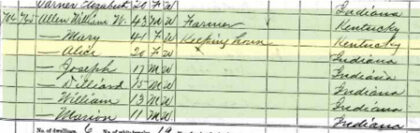 Varner Elizabeth 20 F W Indiana
Allen William W. 43 M W Farmer Kentucky
— Mary 41 F W Keeping house Kentucky
— Alice 20 F W Indiana
— Joseph 17 M W Indiana
— Williard 15 M W Indiana
— William 13 M W Indiana
— Marion 11 M W Indiana
No. of dwellings 6 19